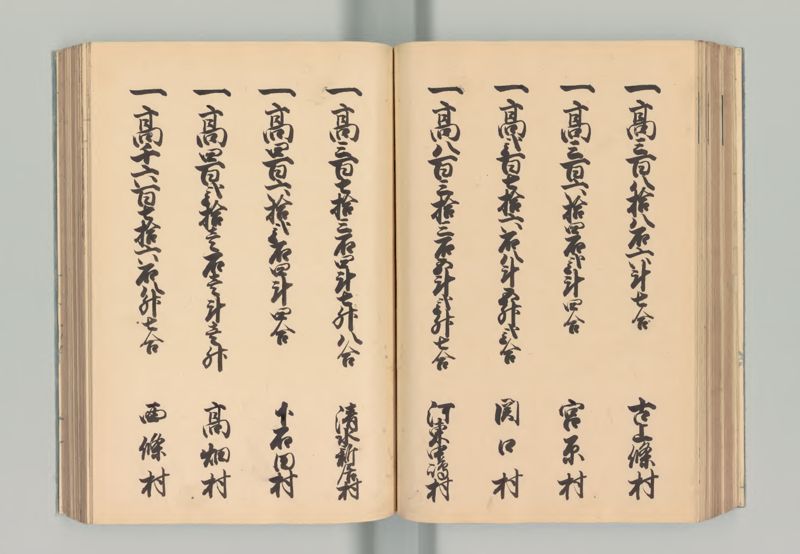 一高三百八拾八石六斗七合 古上條村
一高三百六拾四石弐斗四合 宮原村
一高弐百七拾六石八斗五升弐合 関口村
一高八百三拾三石五斗弐升七合 河東中嶋村
一高三百七拾三石四斗七升八合 清水新居村
一高四百六拾弐石四斗四合 上石田村
一高四百弐拾壱石壱斗壱升 高畑村
一高千六百七拾六石八升七合 西條村